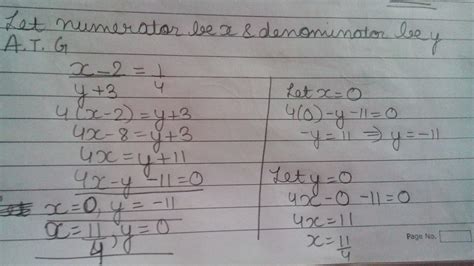 Let numerator be x & denominator be y
A.T.G
x-2 = 1
y+3   4
4(x-2)=y+3
4x-8=y+3
4x=y+11
4x-y-11=0
x=0, y=-11
x=11, y=0
4
Let x=0
4(0)-y-11=0
-y=11 ⇒ y=-11
Let y=0
4x-0-11=0
4x=11
x=11
4
Page No.